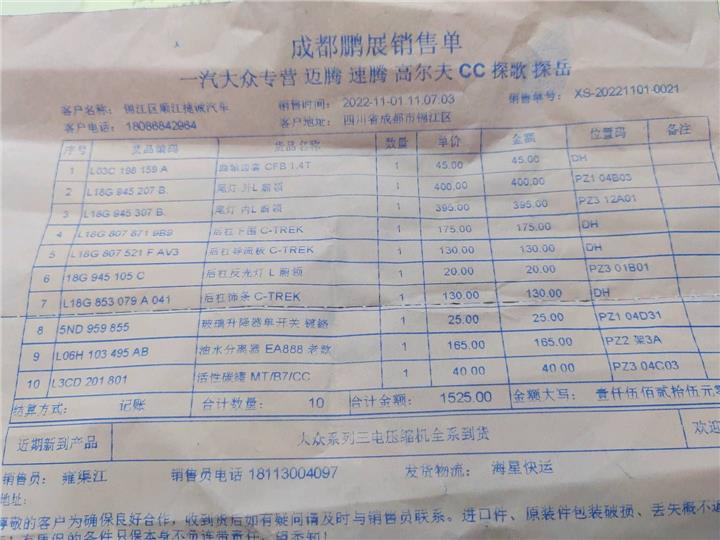 成都鹏展销售单
一汽大众专营 迈腾 速腾 高尔夫 CC 探歌 探岳
客户名称: 锦江区顺江挑诚汽车 销售时间: 2022-11-01 11:07:03 销售单号: XS-20221101-0021
客户电话: 18086842984 客户地址: 四川省成都市锦江区
序号 货品编码 货品名称 数量 单价 金额 位置码 备注
1 L03C 198 159 A CFB 1.4T 1 45.00 45.00 DH
2 L18G 945 207 B. 尾灯 外L 1 400.00 400.00 PZ1 04B03
3 L18G 945 307 B. 尾灯 内L 1 395.00 395.00 PZ3 12A01
4 L18G 807 871 9B9 后杠下围 C-TREK 1 175.00 175.00 DH
5 L18G 807 521 F AV3 后杠导流板 C-TREK 1 130.00 130.00 DH
6 18G 945 105 C 后杠反光灯 L 1 20.00 20.00 PZ3 01B01
7 L18G 853 079 A 041 后杠饰条 C-TREK 1 130.00 130.00 DH
8 5ND 959 855 玻璃升降器单开关 镀铬 1 25.00 25.00 PZ1 04D31
9 L06H 103 495 AB 油水分离器 EA888 老款 1 165.00 165.00 PZ2 架3A
10 L3CD 201 801 活性碳罐 MT/B7/CC 1 40.00 40.00 PZ3 04C03
结算方式: 记账 合计数量: 10 合计金额: 1525.00 金额大写: 壹仟伍佰贰拾伍元零
近期新到产品 大众系列三电压缩机全系到货 欢迎
销售员: 雍渠江 销售员电话 18113004097 发货物流: 海星快运
地址:
尊敬的客户为确保良好合作，收到货后如有疑问请及时与销售员联系。进口件、原装件包装破损、丢失概不退
质保的各件只保本身不负连带责任，望悉知!